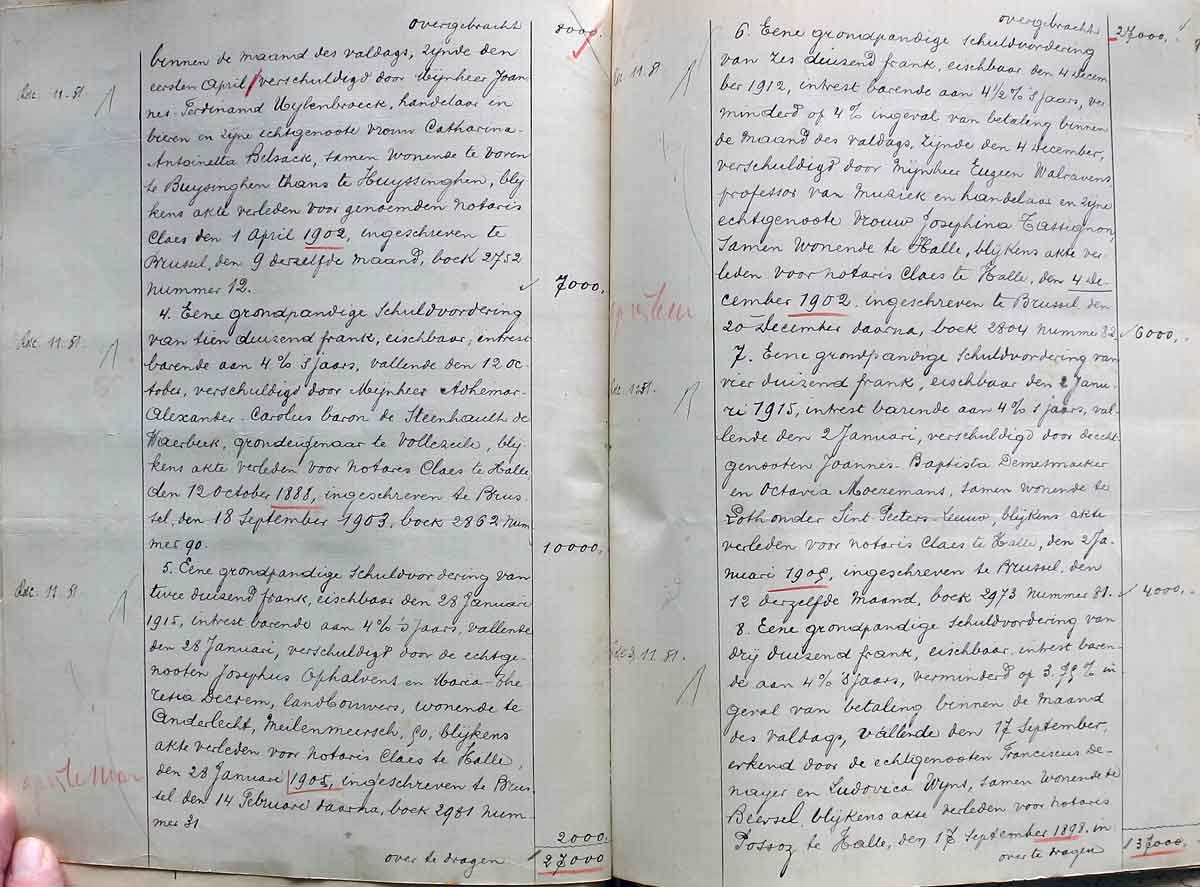 overgebracht 8000.
binnen de maand des valdags, zijnde den
eersten April verschuldigd door Mijnheer Joan-
nes-Ferdinand Uylenbroeck, handelaar in
bieren en zijne echtgenoote vrouw Catharina-
Antoinetta Belsack, samen wonende te voren
te Buysinghen thans te Huyssinghen, blij-
kens akte verleden voor genoemden notaris
Claes den 1 April 1902, ingeschreven te
Brussel, den 9 derzelfde maand, boek 2752
nummer 12. 7000.
4. Eene grondpandige schuldvordering
van tien duizend frank, eischbaar, intrest
barende aan 4% 's jaars, vallende den 12 oc-
tober, verschuldigd door Mijnheer Adhemar-
Alexander-Carolus baron de Steenhault de
Waerbeek, grondeigenaar te Vollezeele, blij-
kens akte verleden voor notaris Claes te Halle
den 12 October 1888, ingeschreven te Brus-
sel, den 18 September 1903, boek 2862 num-
mer 90. 10000.
5. Eene grondpandige schuldvordering van
twee duizend frank, eischbaar den 28 Januari
1915, intrest barende aan 4% 's jaars, vallende
den 28 Januari, verschuldigd door de echtge-
nooten Josephus Ophalvens en Maria-The-
resia Decrem, landbouwers, wonende te
Anderlecht, Meilenmeersch, 50, blijkens
akte verleden voor notaris Claes te Halle,
den 28 Januari 1905, ingeschreven te Brus-
sel den 14 Februari daarna, boek 2981 num-
mer 31 2000.
over te dragen 27000
overgebracht 27000.
6. Eene grondpandige schuldvordering
van zes duizend frank, eischbaar den 4 Decem-
ber 1912, intrest barende aan 4 1/2 % 's jaars, ver-
minderd op 4% ingeval van betaling binnen
de maand des valdags, zijnde den 4 December,
verschuldigd door Mijnheer Eugeen Walravens,
professor van muziek en handelaar en zijne
echtgenoote vrouw Josephina Tassignon,
samen wonende te Halle, blijkens akte ver-
leden voor notaris Claes te Halle, den 4 De-
cember 1902, ingeschreven te Brussel den
20 December daarna, boek 2804 nummer 32 6000.
7. Eene grondpandige schuldvordering van
vier duizend frank, eischbaar den 2 Janu-
ri 1915, intrest barende aan 4% 's jaars, val-
lende den 2 Januari, verschuldigd door de echt-
genooten Joannes-Baptista Demesmaeker
en Octavia Moeremans, samen wonende te
Loth onder Sint-Peeters-Leeuw, blijkens akte
verleden voor notaris Claes te Halle, den 2 Ja-
nuari 1905, ingeschreven te Brussel, den
12 derzelfde maand, boek 2973 nummer 81. 4000.
8. Eene grondpandige schuldvordering van
drij duizend frank, eischbaar, intrest baren-
de aan 4% 's jaars, verminderd op 3.75% in-
geval van betaling binnen de maand
des valdags, vallende den 17 September,
erkend door de echtgenooten Franciscus de-
mayer en Ludovica Wyns, samen wonende te
Beersel, blijkens akte verleden voor notaris
Possoz te Halle, den 17 September 1898, in
over te dragen 37000.